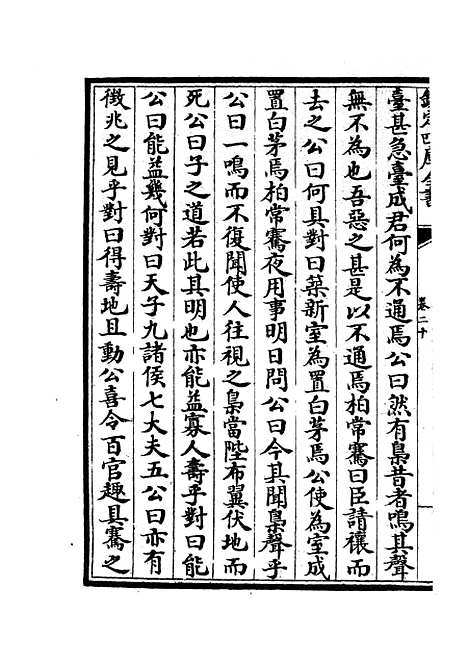 欽定四庫全書
卷二十
臺甚急臺成君何為不通焉公曰然有梟昔者鳴其聲
無不為也吾惡之甚是以不通焉柏常騫曰臣請禳而
去之公曰何具對曰築新室為置白茅焉公使為室成
置白茅焉柏常騫夜用事明日問公曰今其聞梟聲乎
公曰一鳴而不復聞使人往視之梟當陛布翼伏地而
死公曰子之道若此其明也亦能益寡人壽乎對曰能
公曰能益幾何對曰天子九諸侯七大夫五公曰亦有
徴兆之見乎對曰得壽地且動公喜令百官趣具騫之